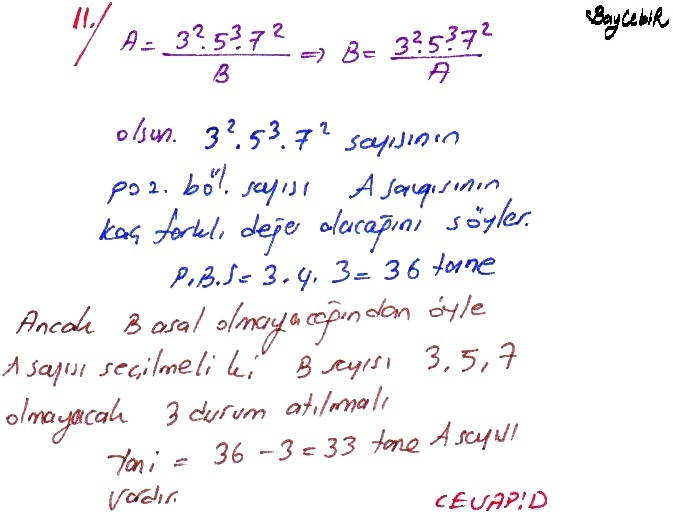 BayCebiR
11./ A = 3².5³.7² / B ⇒ B = 3².5³.7² / A
olsun. 3².5³.7² sayısının
poz. böl. sayısı A sayısının
kaç farklı değer alacağını söyler.
P.B.S = 3.4.3 = 36 tane
Ancak B asal olmayacağından öyle
A sayısı seçilmeli ki B sayısı 3, 5, 7
olmayacak 3 durum atılmalı
Yani = 36 - 3 = 33 tane A sayısı
vardır.
CEVAP: D